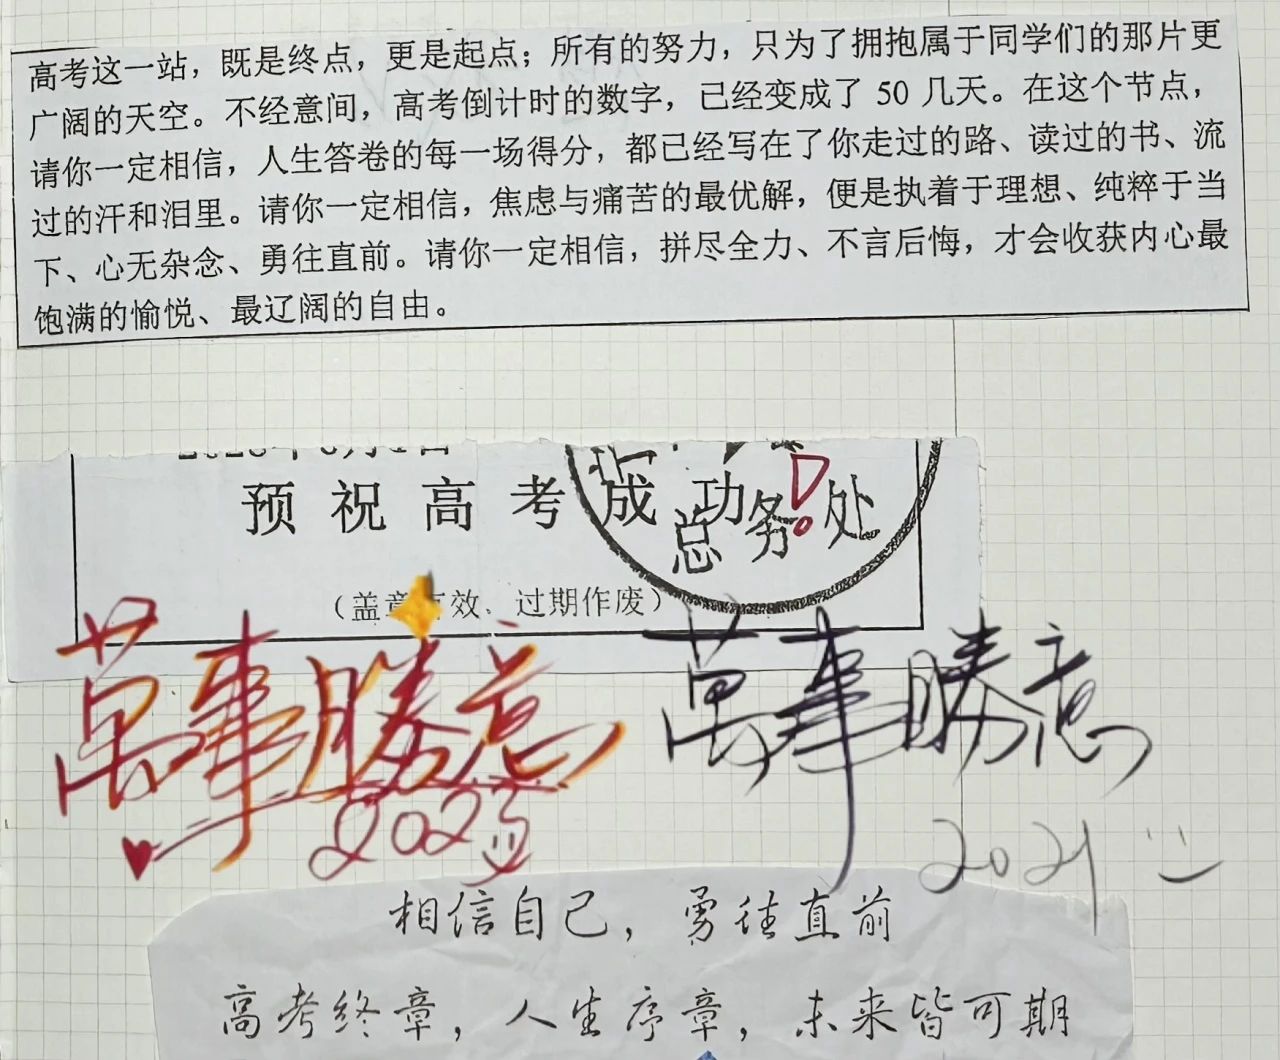 高考这一站，既是终点，更是起点；所有的努力，只为了拥抱属于同学们的那片更
广阔的天空。不经意间，高考倒计时的数字，已经变成了 50 几天。在这个节点，
请你一定相信，人生答卷的每一场得分，都已经写在了你走过的路、读过的书、流
过的汗和泪里。请你一定相信，焦虑与痛苦的最优解，便是执着于理想、纯粹于当
下、心无杂念、勇往直前。请你一定相信，拼尽全力、不言后悔，才会收获内心最
饱满的愉悦、最辽阔的自由。
预祝高考成功!
总务处
（盖章有效、过期作废）
萬事勝意
2023
萬事勝意
2021
相信自己，勇往直前
高考终章，人生序章，未来皆可期